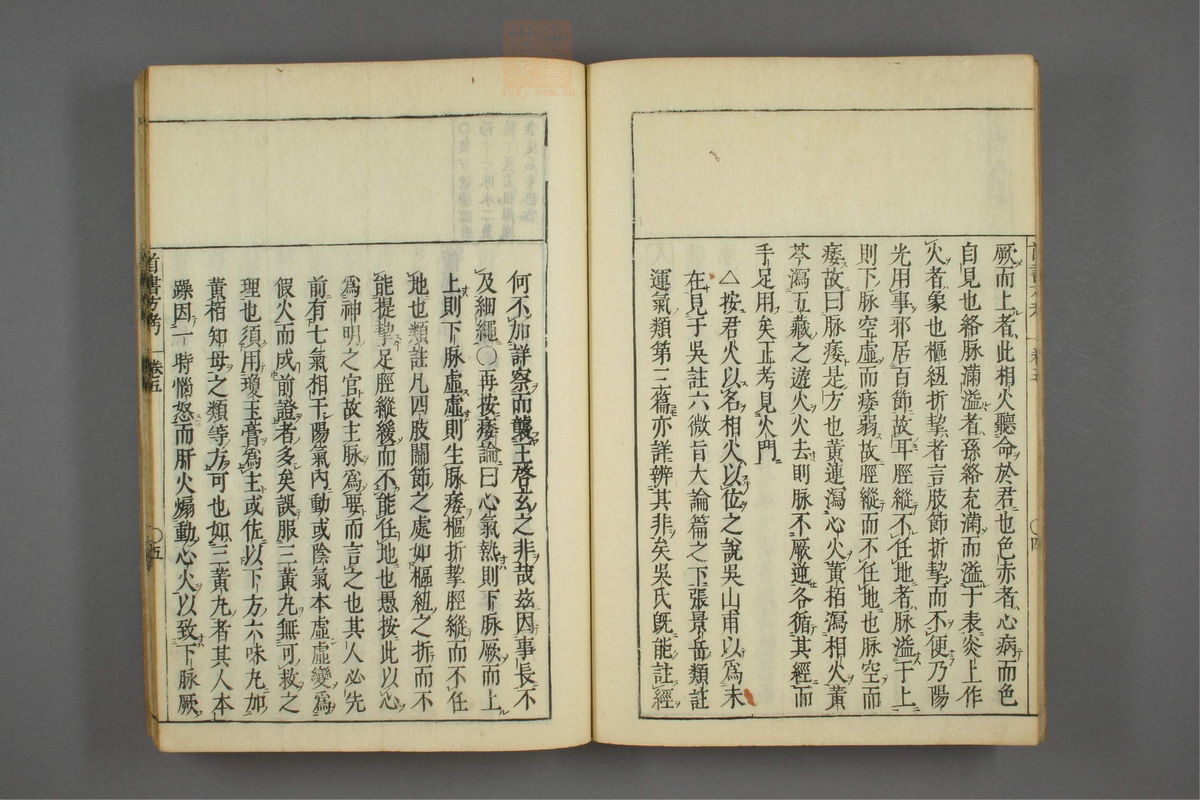 厥而上者此相火聽命於君也色赤者心病而色
自見也絡脉滿溢者孫絡充滿而溢于表炎上作
火者象也樞紐折挈者言肢節折挈而不便乃陽
光用事邪居百節故耳脛縱不任地者脉溢于上
則下脉空虛而痿弱故脛縱而不任地也脉空而
痿故曰脉痿是方也黃連瀉心火黃栢瀉相火黃
芩瀉五藏之遊火火去則脉不厥逆各循其經而
手足用矣正考見火門
△按君火以名相火以位之說吳山甫以爲未
在見于吳註六微旨大論篇之下張景岳類註
運氣類第三篇亦詳辨其非矣吳氏旣能註經
何不加詳察而襲王啓玄之非哉兹因事長不
及細繩○再按痿論曰心氣熱則下脉厥而上
上則下脉虛虛則生脉痿樞折挈脛縱而不任
地也類註凡四肢關節之處如樞紐之折而不
能提挈足脛縱緩而不能任地也愚按此以心
爲神明之官故主脉爲要而言之也其人必先
前有七氣相干陽氣內動或陰氣本虛虛變爲
假火而成前證者多矣誤服三黃丸無可救之
理也須用瓊玉膏爲主或佐以下方六味丸加
黃栢知母之類等方可也如三黃丸者其人本
躁因一時惱怒而肝火煽動心火以致下脉厥
首書方考 卷五 ○五